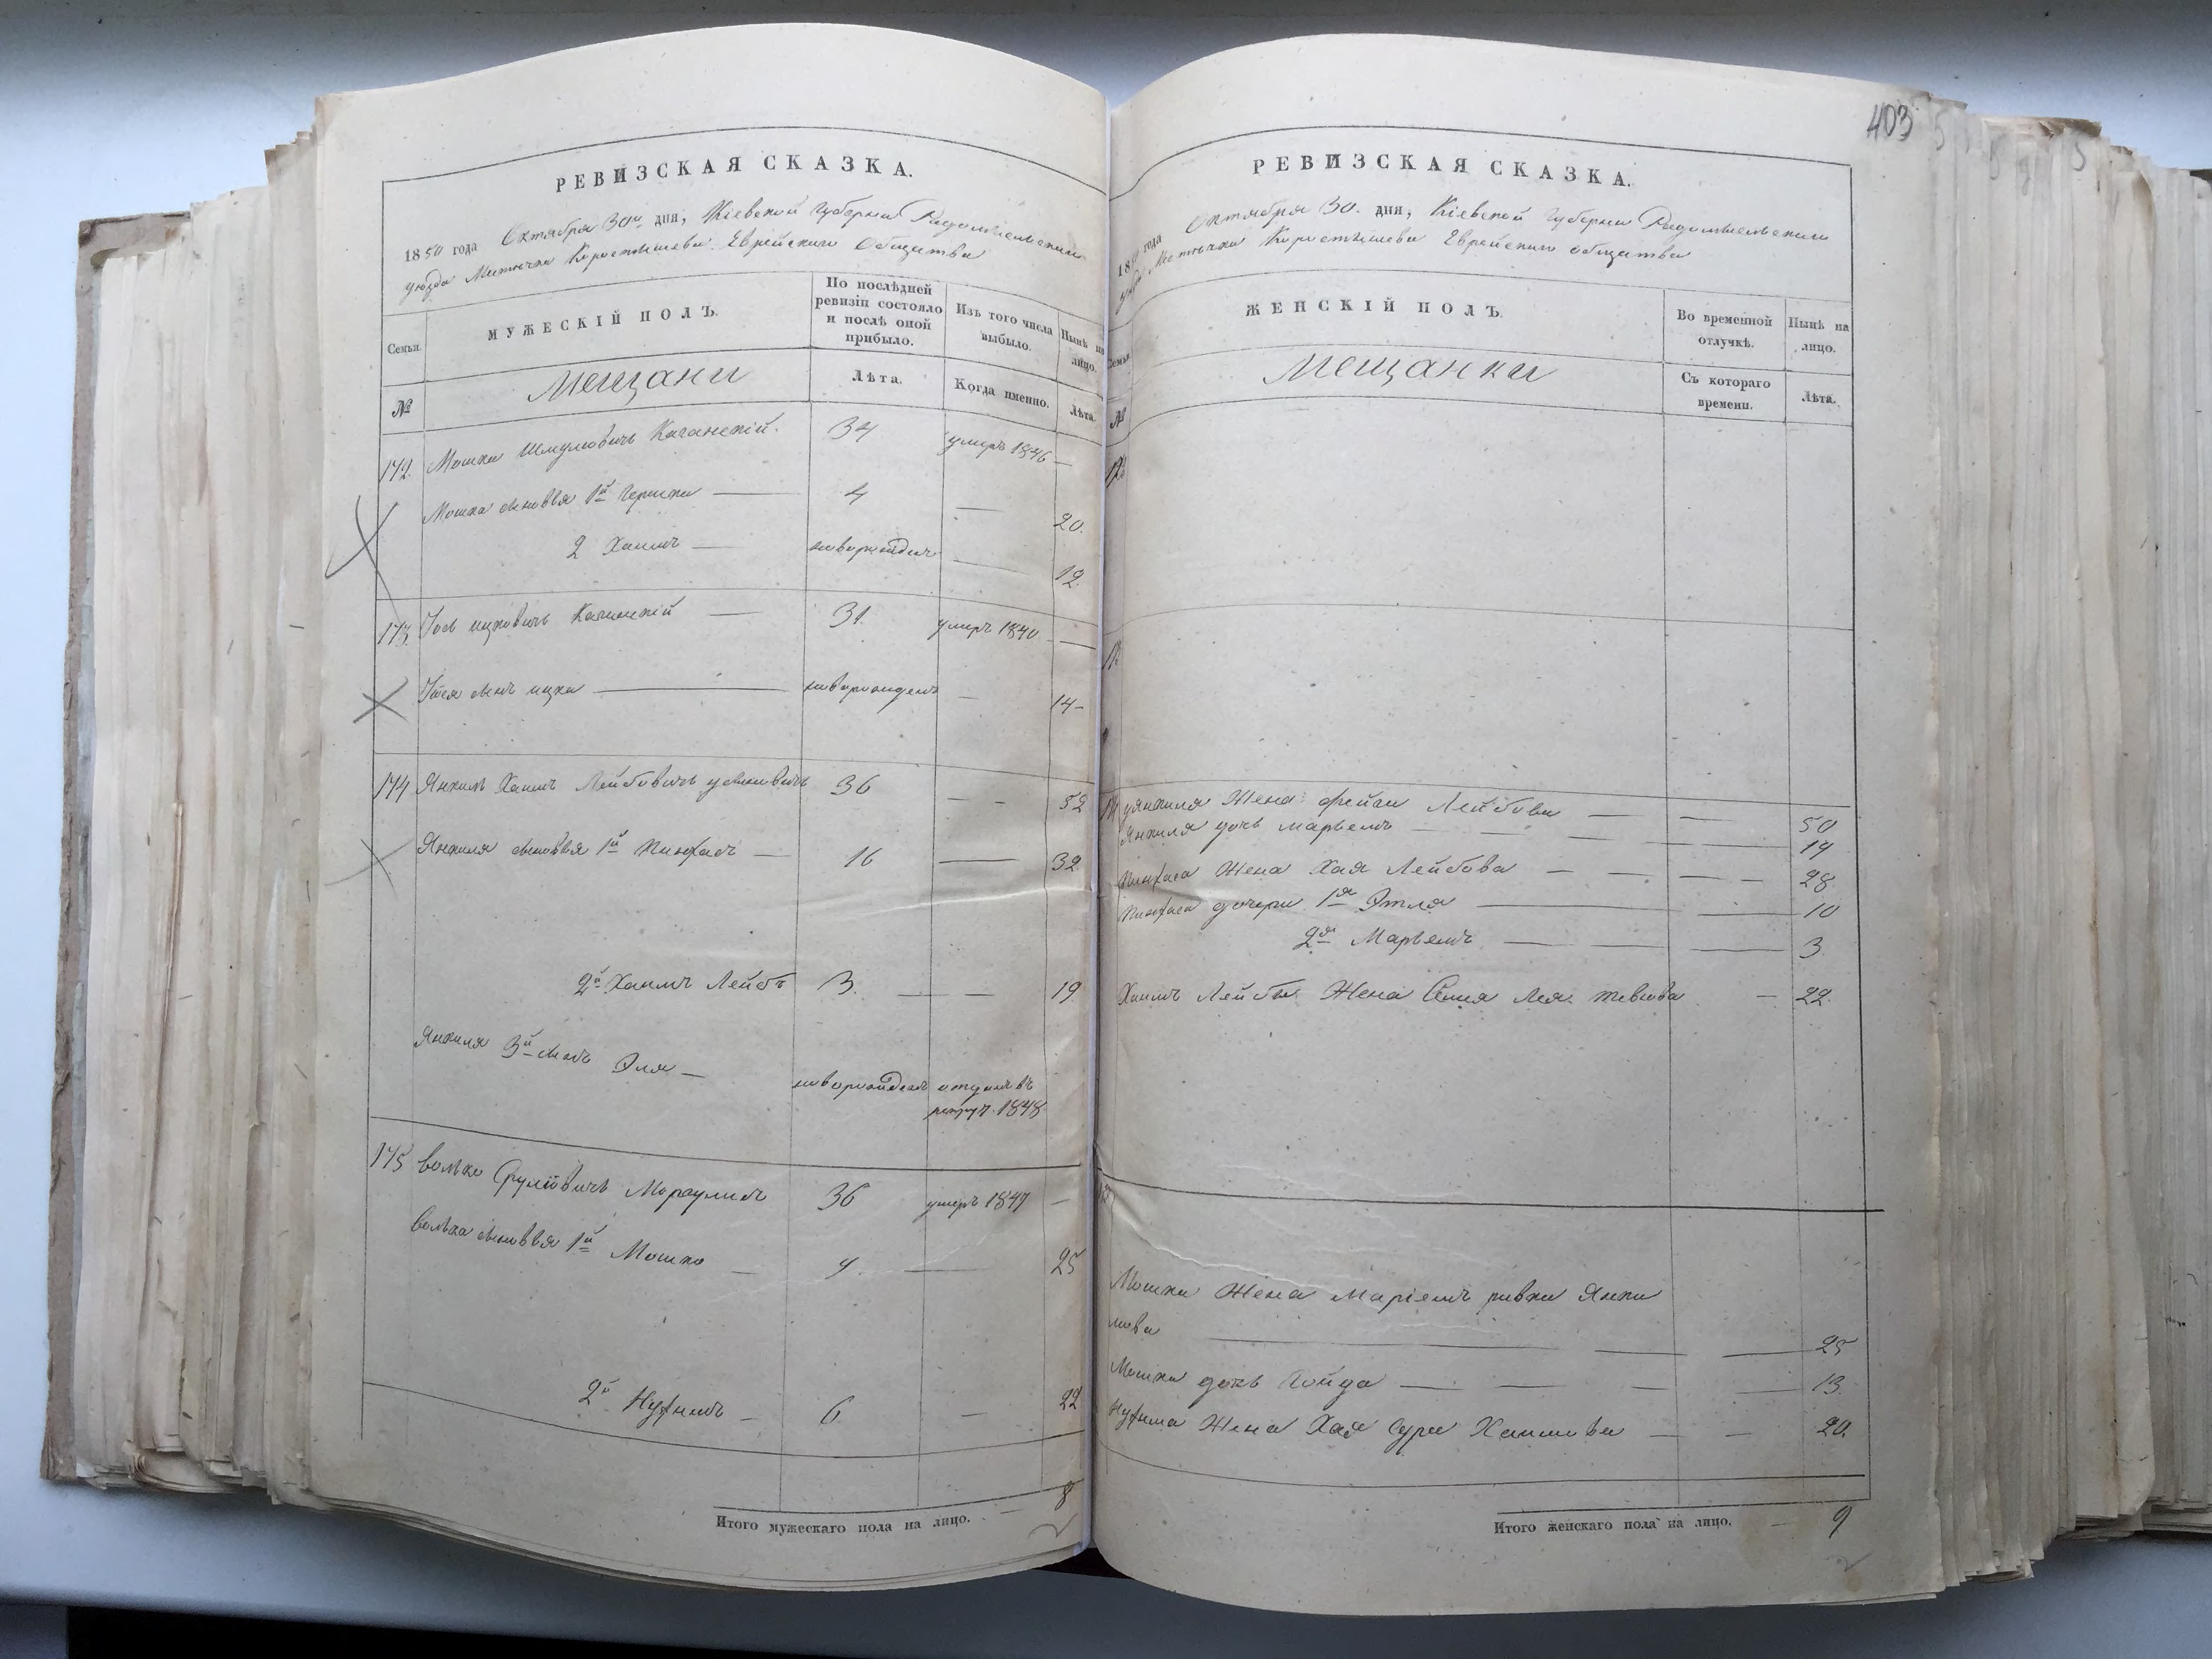 403
РЕВИЗСКАЯ СКАЗКА.
1850 года Октября 30го дня, Кіевской Губерніи Радомысльскаго
уѣзда Мѣстечка Коростышева Еврейскаго Общества
Семьи
МУЖЕСКІЙ ПОЛЪ.
По послѣдней
ревизіи состояло
и послѣ оной
прибыло.
Изъ того числа
выбыло.
Нынѣ на
лицо.
№
Мещани
Лѣта.
Когда именно.
Лѣта.
172. Мошко Шмулевичь 34 умеръ 1846 —
Мошка сыновья 1й Гершко — 4 — 20.
2 Хаимъ — новорожденъ — 12.
173. Іось ицковичь 31. умеръ 1840 —
Іося сынъ ицко — новорожденъ — 14 -
174 Янкель Хаимъ Лейбовичь 36 - - 52
Янкеля сыновья 1й Пинхасъ — 16 — 32
2й Хаимъ Лейбъ 3. — — 19
Янкеля 3й сынъ Эля —
новорожденъ отданъ въ
рекрут. 1848
175 Волько Сруліовичь 36 умеръ 1847 —
Волька сыновья 1й Мошко — 9 — 25
2й Нухимъ — 6 — 22
8
Итого мужескаго пола на лицо.
РЕВИЗСКАЯ СКАЗКА.
1850 года Октября 30. дня, Кіевской Губерніи Радомысльскаго
уѣзда Мѣстечка Коростышева Еврейскаго общества
Семьи
ЖЕНСКІЙ ПОЛЪ.
Во временной
отлучкѣ.
Нынѣ на
лицо.
№
Мещанки
Съ котораго
времени.
Лѣта.
Янкеля Жена Фейга Лейбова — — 50
Янкеля дочь Марьемъ — — — 14
Пинхаса Жена Хая Лейбова — — — — 28
Пинхаса дочери 1я Этля — — 10
2я Марьемъ — — — 3
Хаимъ Лейбы Жена Лея — 22.
Мошка Жена Маріемъ ривка Янке
лева — — — 25
Мошка дочь — — — — 13.
Нухима Жена Хая Сура Хаимова — — 20.
Итого женскаго пола на лицо. — 9